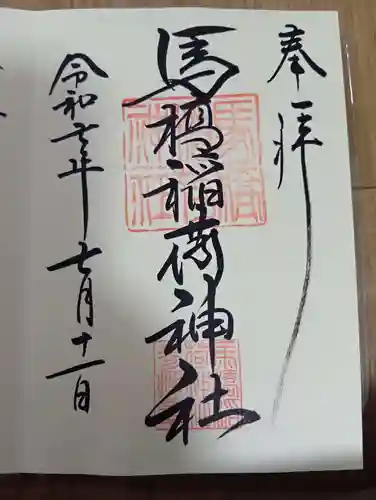 奉拝
馬橋稲荷神社
令和年七月十一日